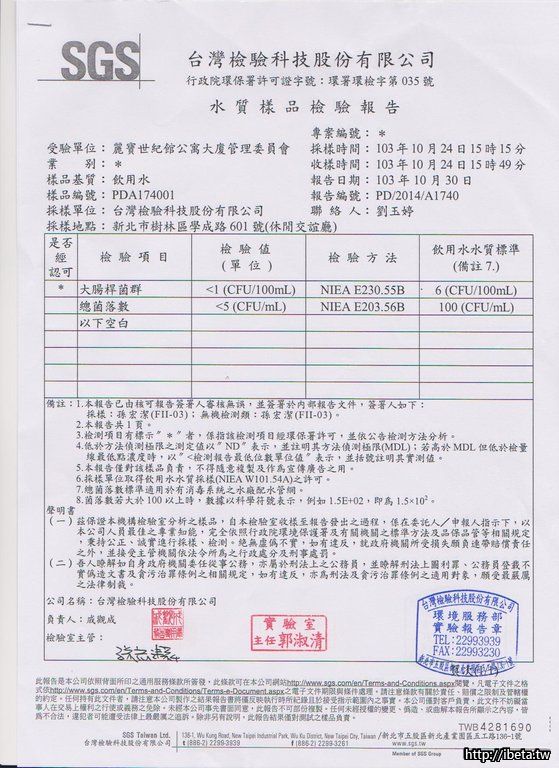 SGS
台灣檢驗科技股份有限公司
行政院環保署許可證字號：環署環檢字第 035 號
水質樣品檢驗報告
專案編號：*
受驗單位：麗寶世紀館公寓大廈管理委員會 採樣時間：103 年 10 月 24 日 15 時 15 分
業 別：* 收樣時間：103 年 10 月 24 日 15 時 49 分
樣品基質：飲用水 報告日期：103 年 10 月 30 日
樣品編號：PDA174001 報告編號：PD/2014/A1740
採樣單位：台灣檢驗科技股份有限公司 聯 絡 人：劉玉婷
採樣地點：新北市樹林區學成路 601 號(休閒交誼廳)
是否經認可 檢驗項目 檢驗值(單位) 檢驗方法 飲用水水質標準(備註 7.)
* 大腸桿菌群 <1 (CFU/100mL) NIEA E230.55B 6 (CFU/100mL)
總菌落數 <5 (CFU/mL) NIEA E203.56B 100 (CFU/mL)
以下空白
備註：1.本報告已由核可報告簽署人審核無誤，並簽署於內部報告文件，簽署人如下：
採樣：孫宏潔(FII-03)；無機檢測類：孫宏潔(FII-03)。
2.本報告共 1 頁。
3.檢測項目有標示"*"者，係指該檢測項目經環保署許可，並依公告檢測方法分析。
4.低於方法偵測極限之測定值以"ND"表示，並註明其方法偵測極限(MDL)；若高於 MDL 但低於檢量
線最低點濃度時，以"<檢測報告最低位數單位值"表示，並括號註明其實測值。
5.本報告僅對該樣品負責，不得隨意複製及作為宣傳廣告之用。
6.採樣單位取得飲用水水質採樣(NIEA W101.54A)之許可。
7.總菌落數標準適用於有消毒系統之水廠配水管網。
8.菌落數若大於 100 以上時，數據以科學符號表示，例如 1.5E+02，即為 1.5×10²。
聲明書
(一) 茲保證本機構檢驗室分析之樣品，自本檢驗室收樣至報告發出之過程，係在委託人／申報人指示下，以
本公司人員最佳之專業知能，完全依照行政院環境保護署及有關機關之標準方法及品保品管等相關規定
，秉持公正、誠實進行採樣、檢測。絕無虛偽不實，如有違反，就政府機關所受損失願負連帶賠償責任
之外，並接受主管機關依法令所為之行政處分及刑事處罰。
(二) 吾人瞭解如自身政府機關委任從事公務，亦屬於刑法上之公務員，並瞭解刑法上圖利罪、公務員登載不
實偽造文書及貪污治罪條例之相關規定，如有違反，亦為刑法及貪污治罪條例之適用對象，願受最嚴厲
之法律制裁。
公司名稱：台灣檢驗科技股份有限公司
負責人：成觀成
檢驗室主管：
實驗室
主任 郭淑清
台灣檢驗科技股份有限公司
環境服務部
實驗報告章
TEL:22993939
FAX:22993230
此報告是本公司依照背面所印之通用服務條款所簽發，此條款可在本公司網站http://www.sgs.com/en/Terms-and-Conditions.aspx閱覽，凡電子文件之格
式依http://www.sgs.com/en/Terms-and-Conditions/Terms-e-Document.aspx之電子文件期限與條件處理。請注意條款有關於責任、賠償之限制及管轄權
的約定。任何持有此文件者，請注意本公司製作之結果報告書將僅反映執行時所紀錄且於接受指示範圍內之事實。本公司僅對客戶負責，此文件不妨礙當
事人在交易上權利之行使或義務之免除。未經本公司事先書面同意，此報告不可部份複製。任何未經授權的變更、偽造、或曲解本報告所顯示之內容，皆
為不合法，違犯者可能遭受法律上最嚴厲之追訴。除非另有說明，此報告結果僅對測試之樣品負責。
TWB4281690
SGS Taiwan Ltd. 136-1, Wu Kung Road, New Taipei Industrial Park, Wu Ku District, New Taipei City, Taiwan /新北市五股區新北產業園區五工路136-1號
台灣檢驗科技股份有限公司 t (886-2) 2299-3939 f (886-2) 2299-3261 www.sgs.com
Member of SGS Group
http://ibeta.tw